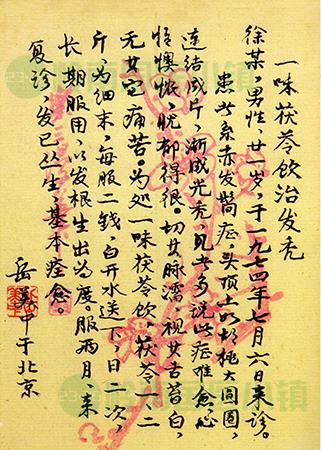 一味茯苓饮治发秃
徐某,男性,廿一岁,于一九七四年七月六日来诊。
患者系发症,头顶上如胡桃大圆圈,
连结成片,渐成光秃,见者多说此症难愈,心
情懊恼,忧郁得很。切其脉濡,视其舌苔白,
无其它痛苦。为处一味茯苓饮,茯苓一、二
斤,为细末,每服二钱,白开水送下,日二次,
长期服用,以发根生出为度。服两月,来
复诊,发已丛生,基本痊愈。
岳美中于北京
小镇